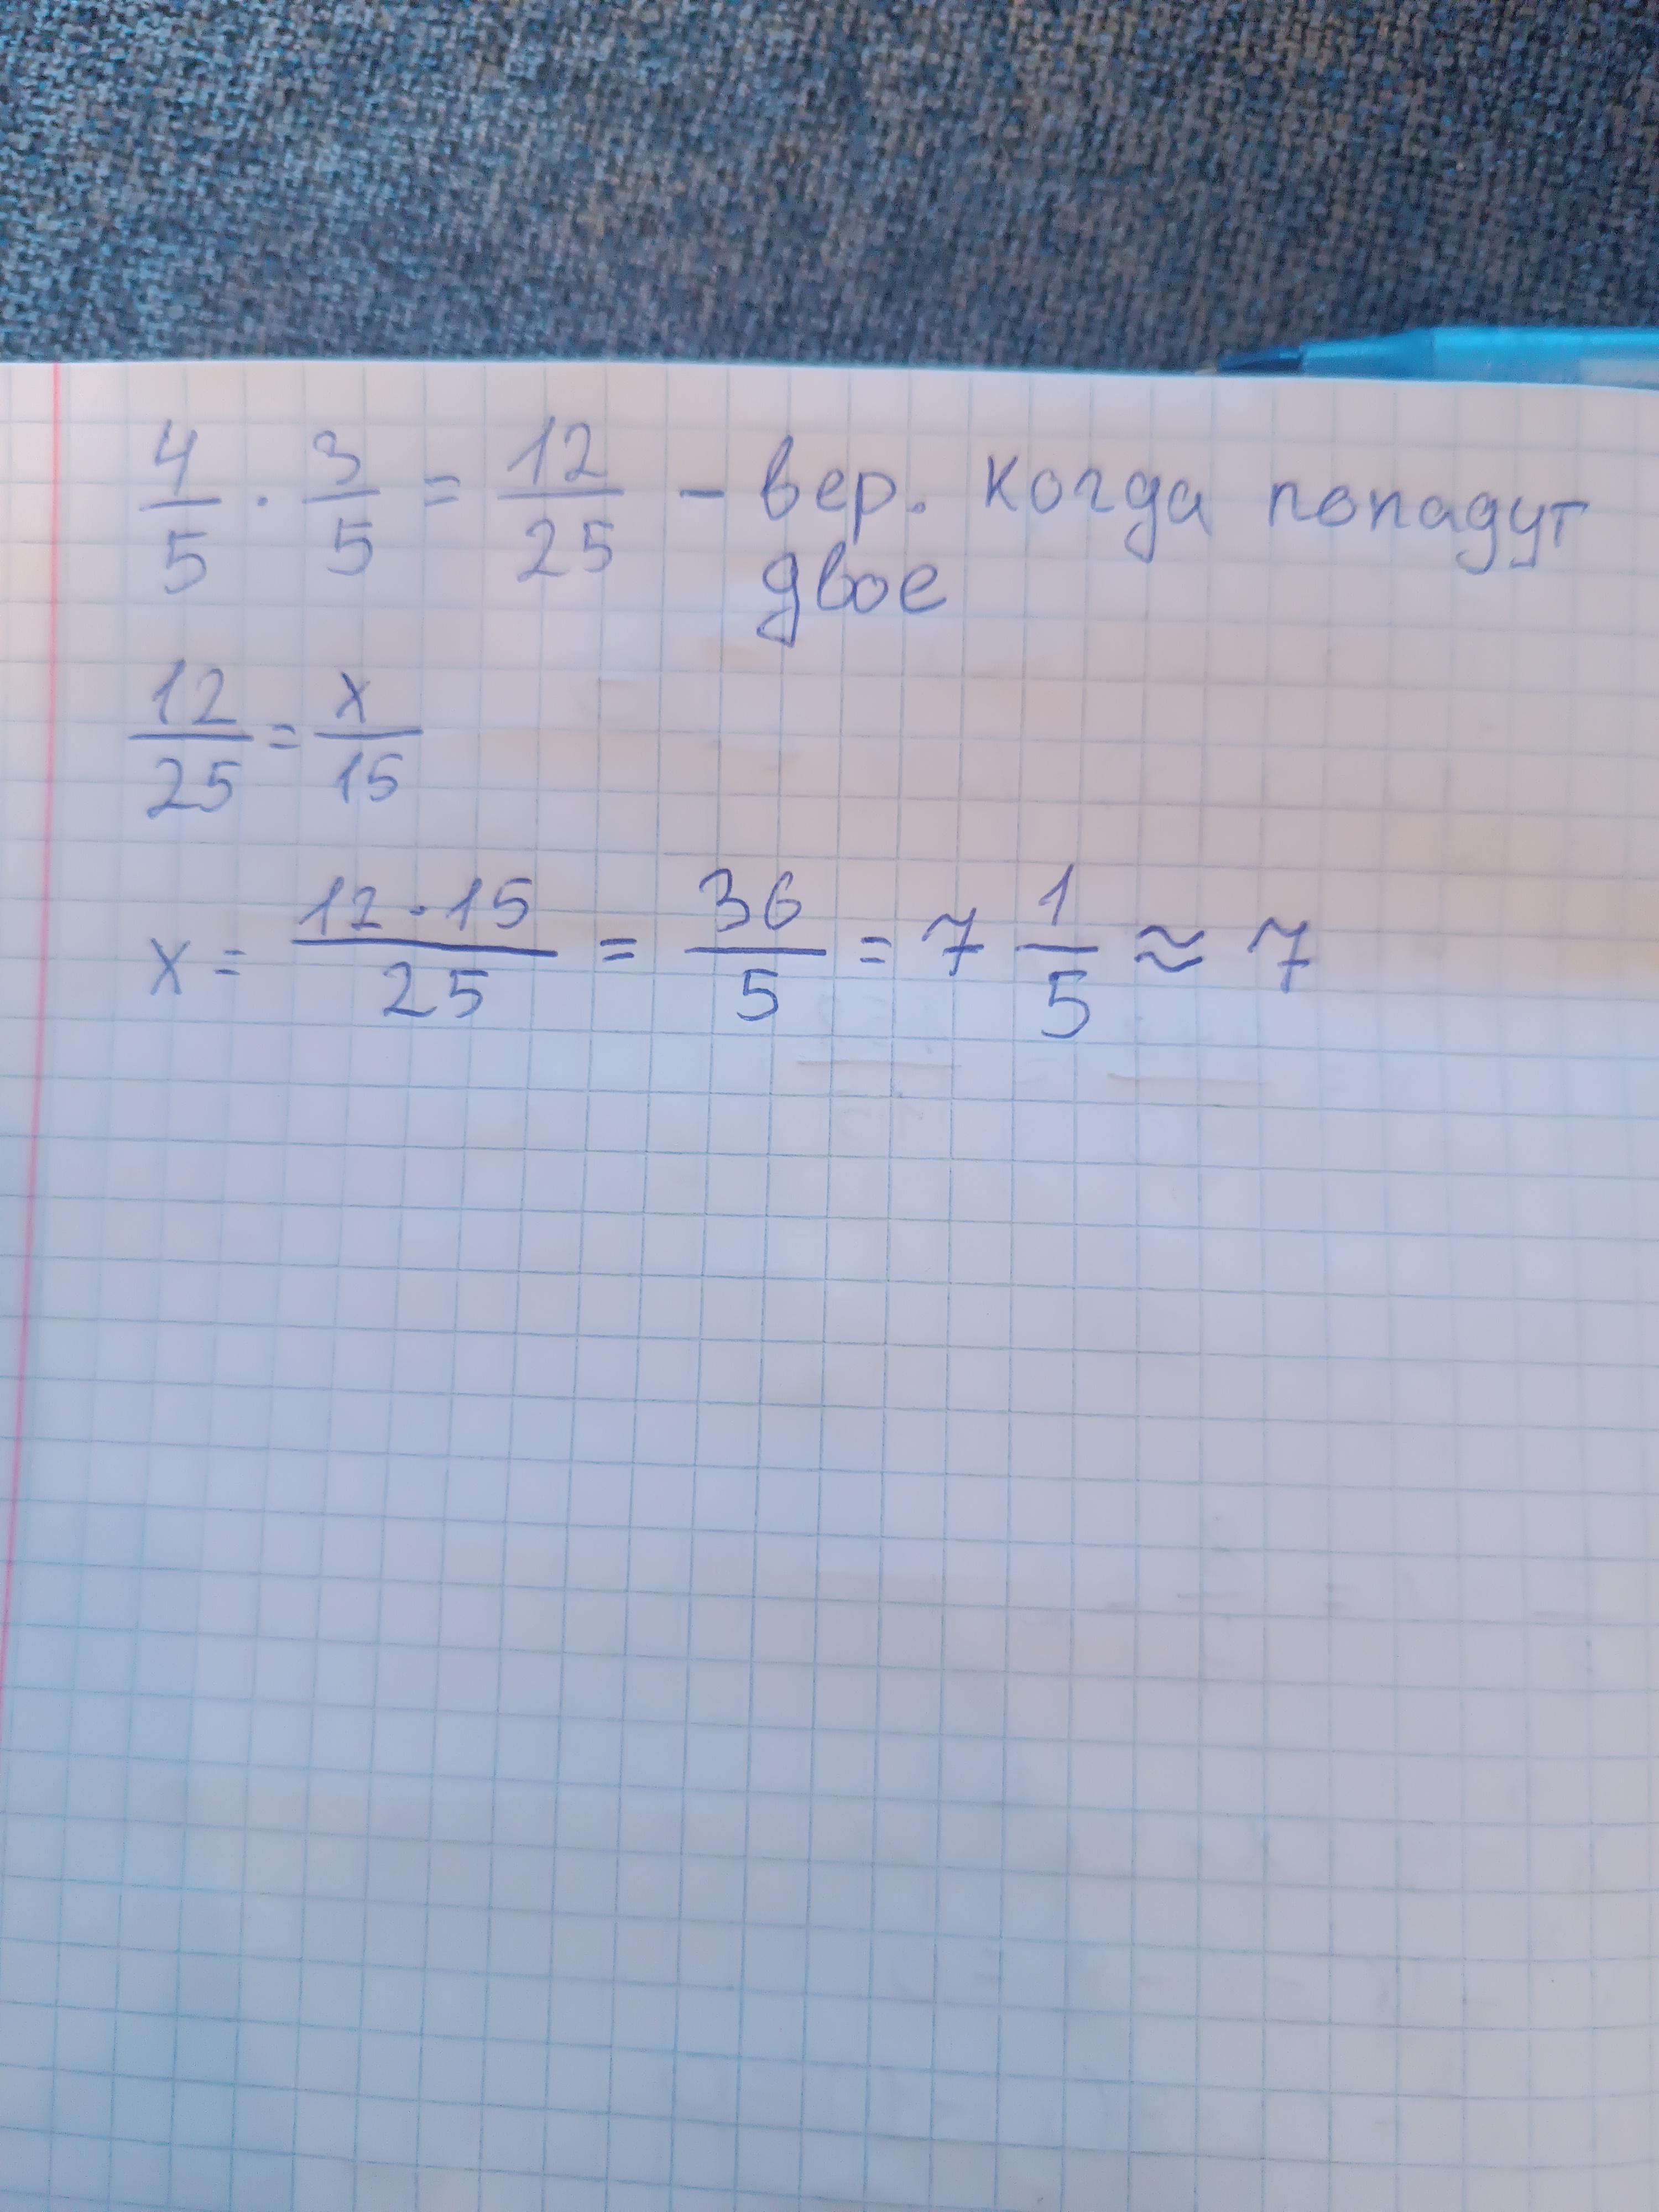 4/5 · 3/5 = 12/25 - вер. когда попадут
двое
12/25 = x/15
x = 12·15/25 = 36/5 = 7 1/5 ≈ 7